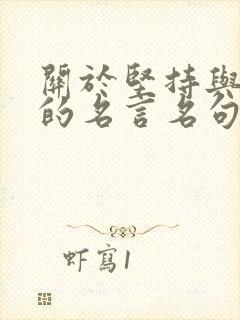 關於堅持與
的名言名句
虾寫1